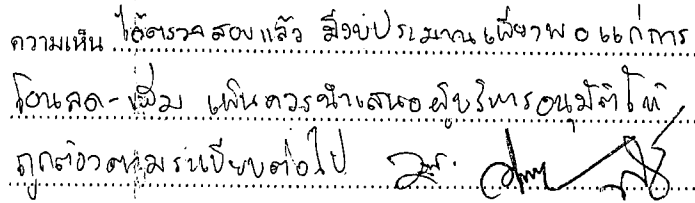 ความเห็น ได้ตรวจสอบแล้ว มีงบประมาณเพียงพอแก่การ
โอนลด-เพิ่ม เห็นควรนำเสนอผู้บริหารอนุมัติให้
ถูกต้องตามระเบียบต่อไป